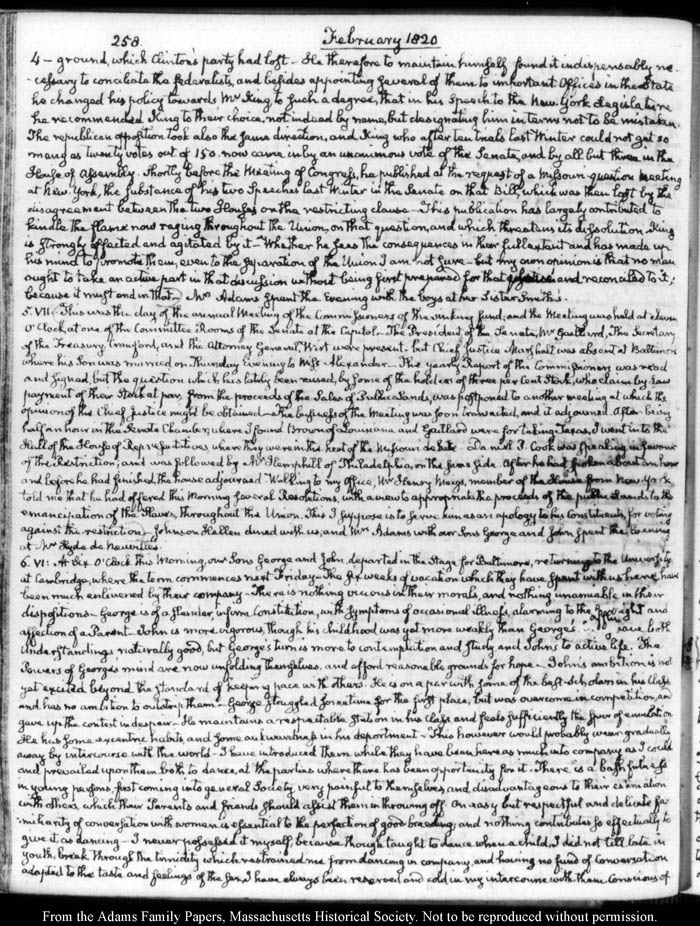 258. February 1820
4 — ground, which Clinton's party had lost — He therefore to maintain himself found it indispensably ne-
cessary to conciliate the federalists, and besides appointing several of them to important Offices in the State
he changed his policy towards Mr King, to such a degree, that in his Speech to the New-York Legislature
he recommended King to their choice, not indeed by name, but designating him in terms not to be mistaken.
The republican opposition took also the same direction, and King who after ten trials last Winter could not get so
many as twenty votes out of 150. now came in by an unanimous vote of the Senate, and by all but three in the
House of Assembly. Shortly before the Meeting of Congress, he published at the request of a Missouri question meeting
at New-York, the substance of his two Speeches last Winter in the Senate on that Bill, which was then lost by the
disagreement between the two Houses on the restricting clause — This publication has largely contributed to
kindle the flame now raging throughout the Union, on that question, and which threatens its dissolution. King
is strongly affected and agitated by it — Whether he sees the consequences in their full extent and has made up
his mind to promote them, even to the separation of the Union I am not sure — but my own opinion is that no man
ought to take an active part in that discussion without being first prepared for that and reconciled to it,
because it must end in that — Mrs Adams spent the Evening with the boys at her Sister Smith's.
5. VII. This was the day of the annual Meeting of the Commissioners of the sinking fund; and the Meeting was held at eleven
O'Clock at one of the Committee Rooms of the Senate at the Capitol. The President of the Senate, Mr Gaillard, The Secretary
of the Treasury Crawford, and the Attorney General, Wirt were present — but Chief Justice Marshall was absent at Baltimore
where his Son was married on Thursday Evening to Miss Alexander — The yearly Report of the Commissioners was read
and signed, but the question which has lately been raised, by some of the holders of three per Cent Stock, who claim by Law
payment of their Stock at par, from the proceeds of the Sales of Public Lands, was postponed to another meeting at which the
opinion of the Chief Justice might be obtained — The business of the Meeting was soon transacted, and it adjourned. After being
half an hour in the Senate Chamber, where I found Brown of Louisiana and Gaillard were for taking Texas, I went into the
Hall of the House of Representatives, where they were in the heat of the Missouri debate. Daniel P. Cook was speaking in favour
of the Restriction; and was followed by Mr Hemphill of Philadelphia, on the same side. After he had spoken about an hour
and before he had finished, the house adjourned. Walking to my Office, Mr Henry Meigs, member of the House from New-York
told me that he had offered this Morning several Resolutions, with a view to appropriate the proceeds of the public Lands to the
emancipation of the Slaves, throughout the Union. This I suppose is to serve him as an apology to his Constituents, for voting
against the restriction. Johnson Hellen dined with us; and Mrs Adams with our Sons George and John spent the Evening
at Mr Hyde de Neuville's.
6. VI: At Six O'Clock this Morning, our Sons George and John, departed in the Stage for Baltimore, returning to the University
at Cambridge, where the term commences next Friday — The six weeks of vacation which they have spent with us here, have
been much enlivened by their company — There is nothing vicious in their morals, and nothing unamiable in their
dispositions — George is of a slender, infirm Constitution, with symptoms of occasional illness, alarming to the foresight and
affection of a Parent — John is more vigorous, though his childhood was yet more weakly than George's. They have both
Understandings naturally good, but George's turn is more to contemplation and study and John's to active life. The
Powers of George's mind are now unfolding themselves, and afford reasonable grounds for hope — John's ambition is not
yet excited beyond the standard of keeping pace with others. He is on a par with some of the best Scholars in his Class
and has no ambition to outstep them — George struggled sometime for the first place, but was overcome in competition, and
gave up the contest in despair — He maintains a respectable Station in his Class and feels sufficiently the spur of emulation
He has some excentric habits, and some awkwardness in his deportment — This however would probably wear gradually
away by intercourse with the world — I have introduced them while they have been here as much into company as I could
and prevailed upon them both to dance, at the parties where there has been opportunity for it. There is a bashfulness
in young persons, first coming into general Society very painful to themselves, and disadvantageous to their estimation
with others, which their Parents and friends should assist them in throwing off. An easy but respectful and delicate fa-
miliarity of conversation with women is essential to the perfection of good breeding; and nothing contributes so effectually to
give it, as dancing — I never possessed it myself, because though taught to dance when a child, I did not till late in
youth, break through the timidity which restrained me from dancing in company, and having no fund of Conversation
adapted to the taste and feelings of the sex, I have always been reserved and cold in my intercourse with them. Conscious of
From the Adams Family Papers, Massachusetts Historical Society. Not to be reproduced without permission.